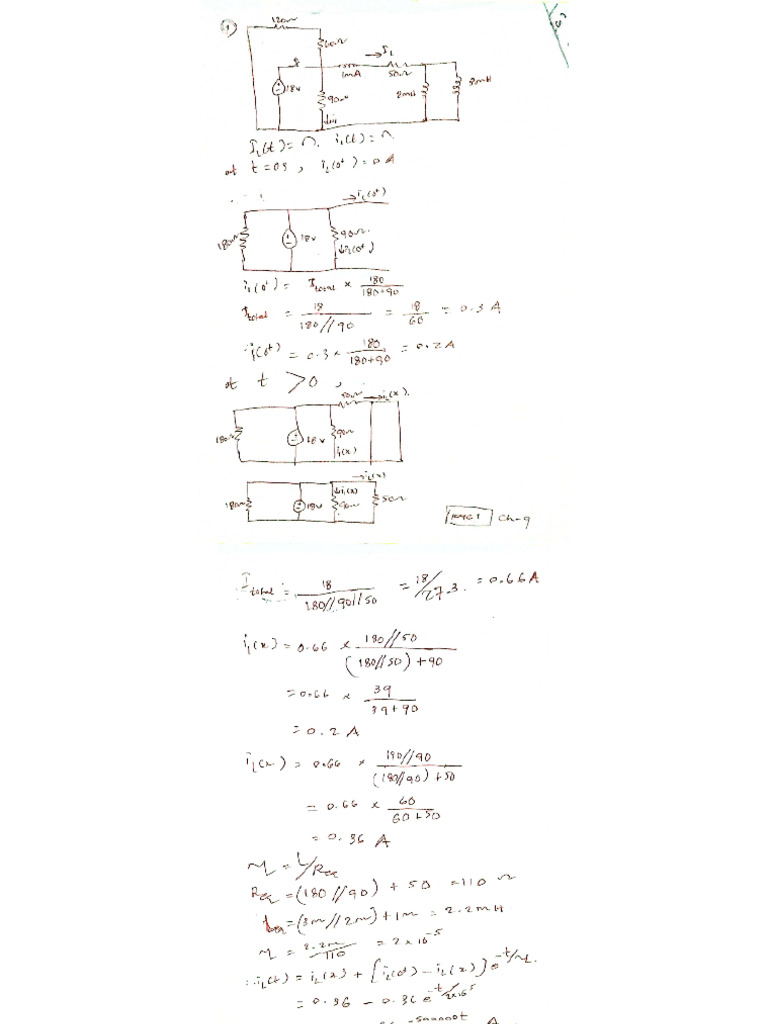 ①
120Ω
60Ω
→I_L
1mA
50Ω
18v
90Ω
2mH
3mH
↓i₁
I_L(t) = ?, i₁(t) = ?
at t = 0s, i_L(0⁺) = 0 A
→ i_L(0⁺)
180Ω
18v
90Ω
↓i₁(0⁺)
i₁(0⁺) = I_total × 180/(180+90)
I_total = 18/(180//90) = 18/60 = 0.3 A
∴ i(0⁺) = 0.3 × 180/(180+90) = 0.2 A
at t > 0,
50Ω → i_L(∝).
180Ω
18v
90Ω
i₁(∝)
→ i_L(∝)
180Ω
18v
↓i₁(∝)
90Ω
50Ω
Ch-9
I_total = 18/(180//90//50) = 18/27.3 = 0.66 A
i₁(∝) = 0.66 × (180//50)/((180//50)+90)
= 0.66 × 39/(39+90)
= 0.2 A
i_L(∝) = 0.66 × (180//90)/((180//90)+50)
= 0.66 × 60/(60+50)
= 0.36 A
τ = L/R_eq
R_eq = (180//90) + 50 = 110 Ω
L_eq = (3m//2m) + 1m = 2.2mH
τ = 2.2m/110 = 2×10⁻⁵
∴ i_L(t) = i_L(∝) + [i_L(0⁺) − i_L(∝)] e^(−t/τ)
= 0.36 − 0.36 e^(−t/2×10⁻⁵)